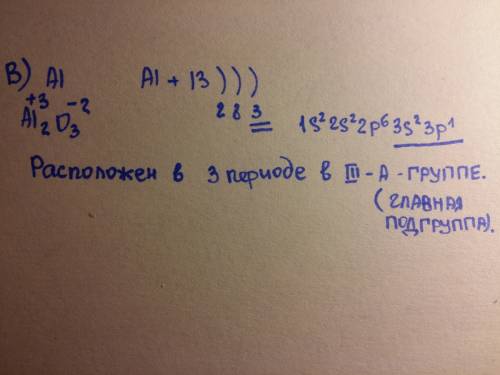 В) Al Al + 13 ) ) )
+3 -2 2 8 3
Al2O3 1s² 2s² 2p⁶ 3s² 3p¹
Расположен в 3 периоде в III - А - ГРУППЕ.
(ГЛАВНАЯ
ПОДГРУППА).